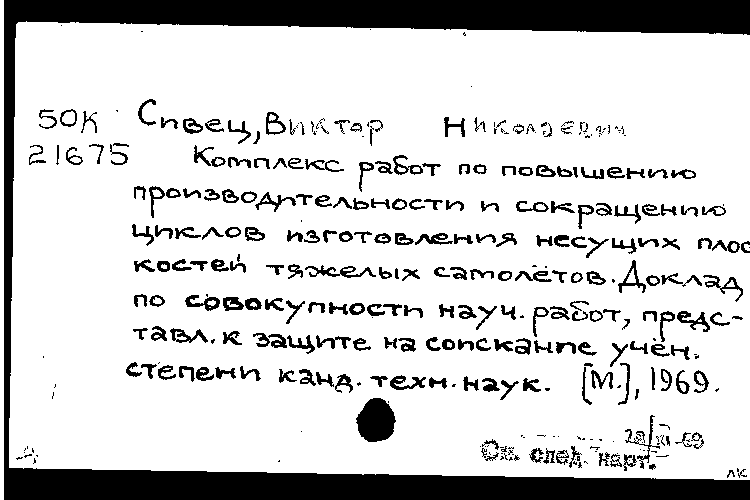 50К Сивец, Виктор Николаевич
21675 Комплекс работ по повышению
производительности и сокращению
циклов изготовления несущих плос
костей тяжелых самолётов. Доклад
по совокупности науч. работ, предс-
тавл. к защите на соискание учён.
степени канд. техн. наук. [М.], 1969.
28/XI-69
См. след. карт.
лк